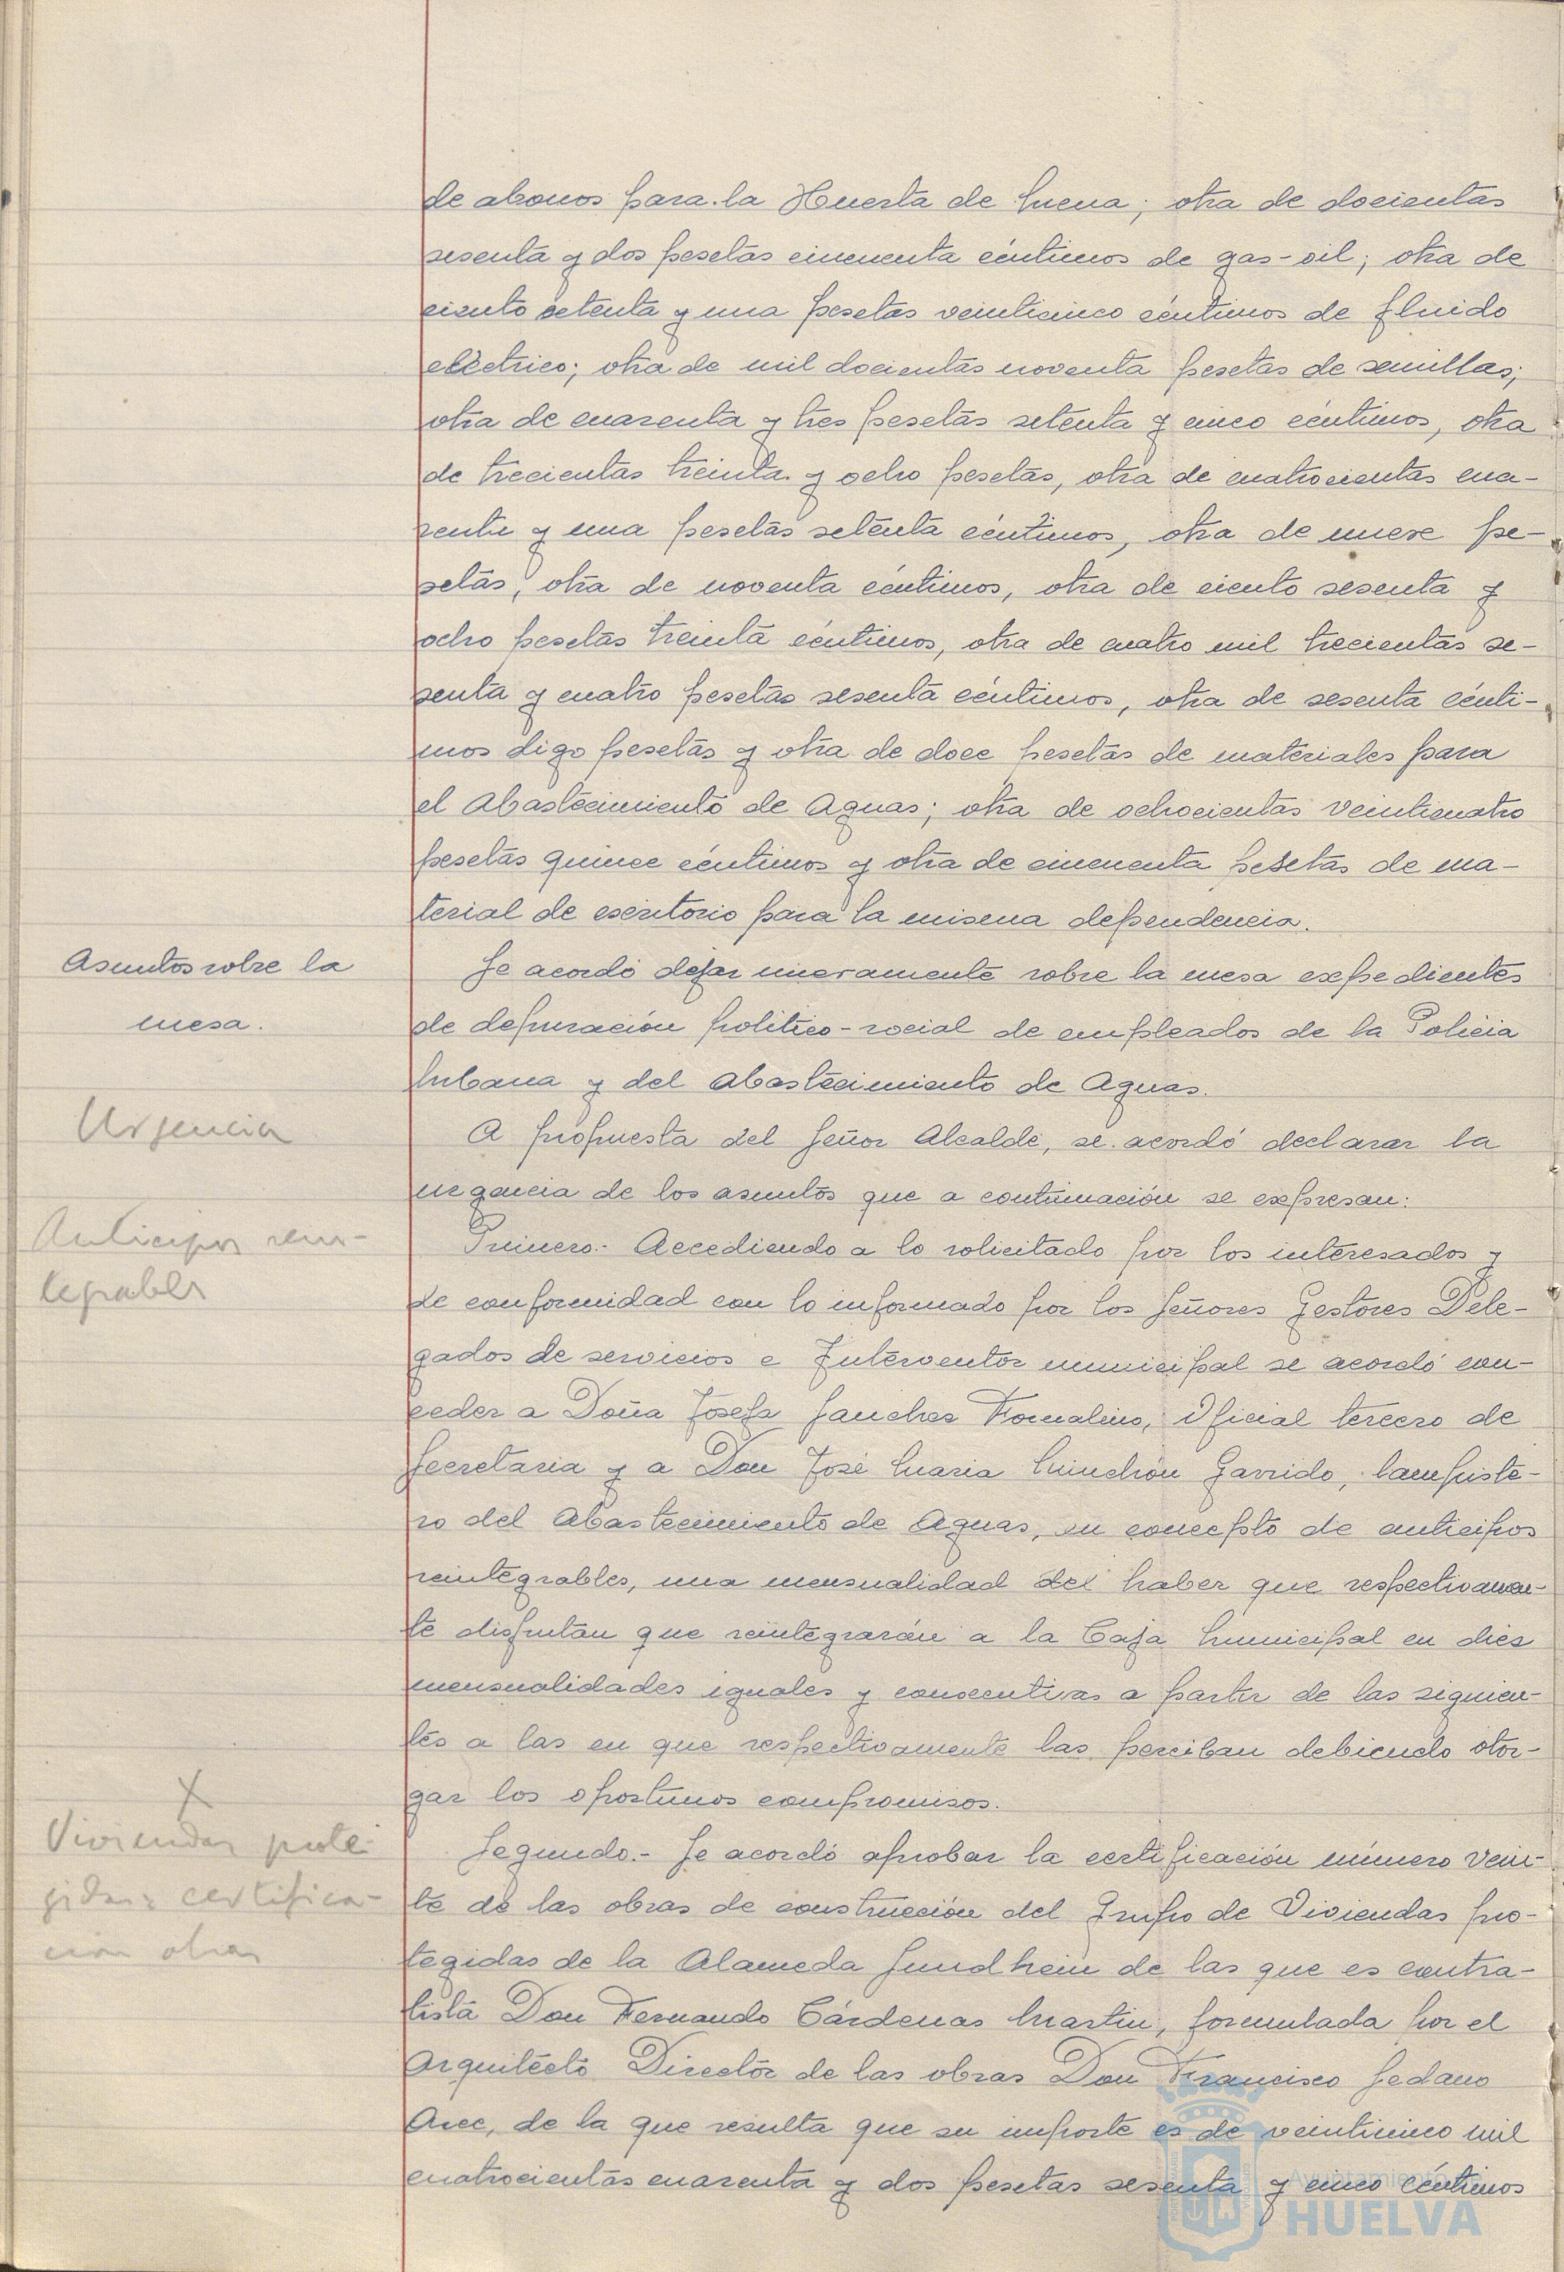 de abonos para la Huerta de Mena; otra de docientas
sesenta y dos pesetas cincuenta céntimos de gas-oil; otra de
ciento setenta y una pesetas veinticinco céntimos de fluido
eléctrico; otra de mil docientas noventa pesetas de semillas;
otra de cuarenta y tres pesetas setenta y cinco céntimos, otra
de trecientas treinta y ocho pesetas, otra de cuatrocientas cua-
renta y una pesetas setenta céntimos, otra de nueve pe-
setas, otra de noventa céntimos, otra de ciento sesenta y
ocho pesetas treinta céntimos, otra de cuatro mil trecientas se-
senta y cuatro pesetas sesenta céntimos, otra de sesenta cénti-
mos digo pesetas y otra de doce pesetas de materiales para
el Abastecimiento de Aguas; otra de ochocientas veinticuatro
pesetas quince céntimos y otra de cincuenta pesetas de ma-
terial de escritorio para la misma dependencia.
Asuntos sobre la
mesa.
Se acordó dejar nuevamente sobre la mesa expedientes
de depuración político-social de empleados de la Policía
Urbana y del Abastecimiento de Aguas.
Urgencia
A propuesta del Señor Alcalde, se acordó declarar la
urgencia de los asuntos que a continuación se expresan:
Anticipos rein-
tegrables
Primero.- Accediendo a lo solicitado por los interesados y
de conformidad con lo informado por los Señores Gestores Dele-
gados de servicios e Interventor municipal se acordó con-
ceder a Doña Josefa Sanchez Tornalino, Oficial tercero de
Secretaria y a Don José Maria Minchón Garrido, lampiste-
ro del Abastecimiento de Aguas, en concepto de anticipos
reintegrables, una mensualidad del haber que respectivamen-
te disfrutan que reintegrarán a la Caja Municipal en diez
mensualidades iguales y consecutivas a partir de las siguien-
tes a las en que respectivamente las perciban debiendo otor-
gar los oportunos compromisos.
X
Viviendas prote-
gidas: certifica-
ción obras
Segundo.- Se acordó aprobar la certificación número vein-
te de las obras de construcción del Grupo de Viviendas pro-
tegidas de la Alameda Sundhein de las que es contra-
tista Don Fernando Cárdenas Martin, formulada por el
Arquitecto Director de las obras Don Francisco Sedano
Arce, de la que resulta que su importe es de veinticinco mil
cuatrocientas cuarenta y dos pesetas sesenta y cinco céntimos
Ayuntamiento de
HUELVA